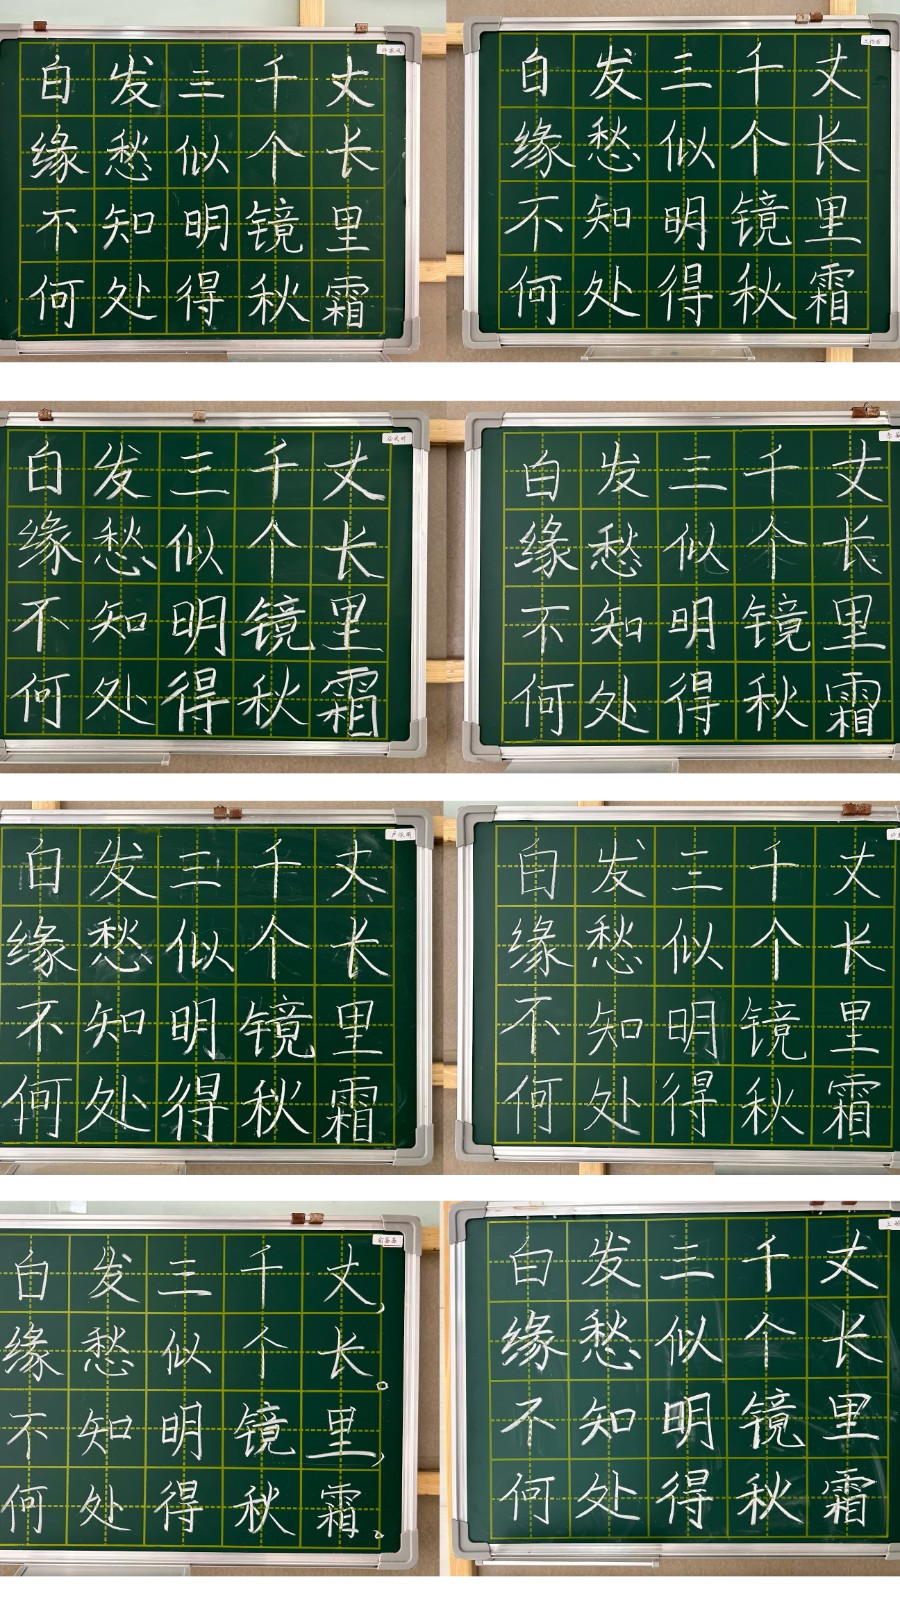 白发三千丈
缘愁似个长
不知明镜里
何处得秋霜
白发三千丈
缘愁似个长
不知明镜里
何处得秋霜
白发三千丈
缘愁似个长
不知明镜里
何处得秋霜
白发三千丈
缘愁似个长
不知明镜里
何处得秋霜
白发三千丈
缘愁似个长
不知明镜里
何处得秋霜
白发三千丈
缘愁似个长
不知明镜里
何处得秋霜
白发三千丈,
缘愁似个长。
不知明镜里,
何处得秋霜。
白发三千丈
缘愁似个长
不知明镜里
何处得秋霜